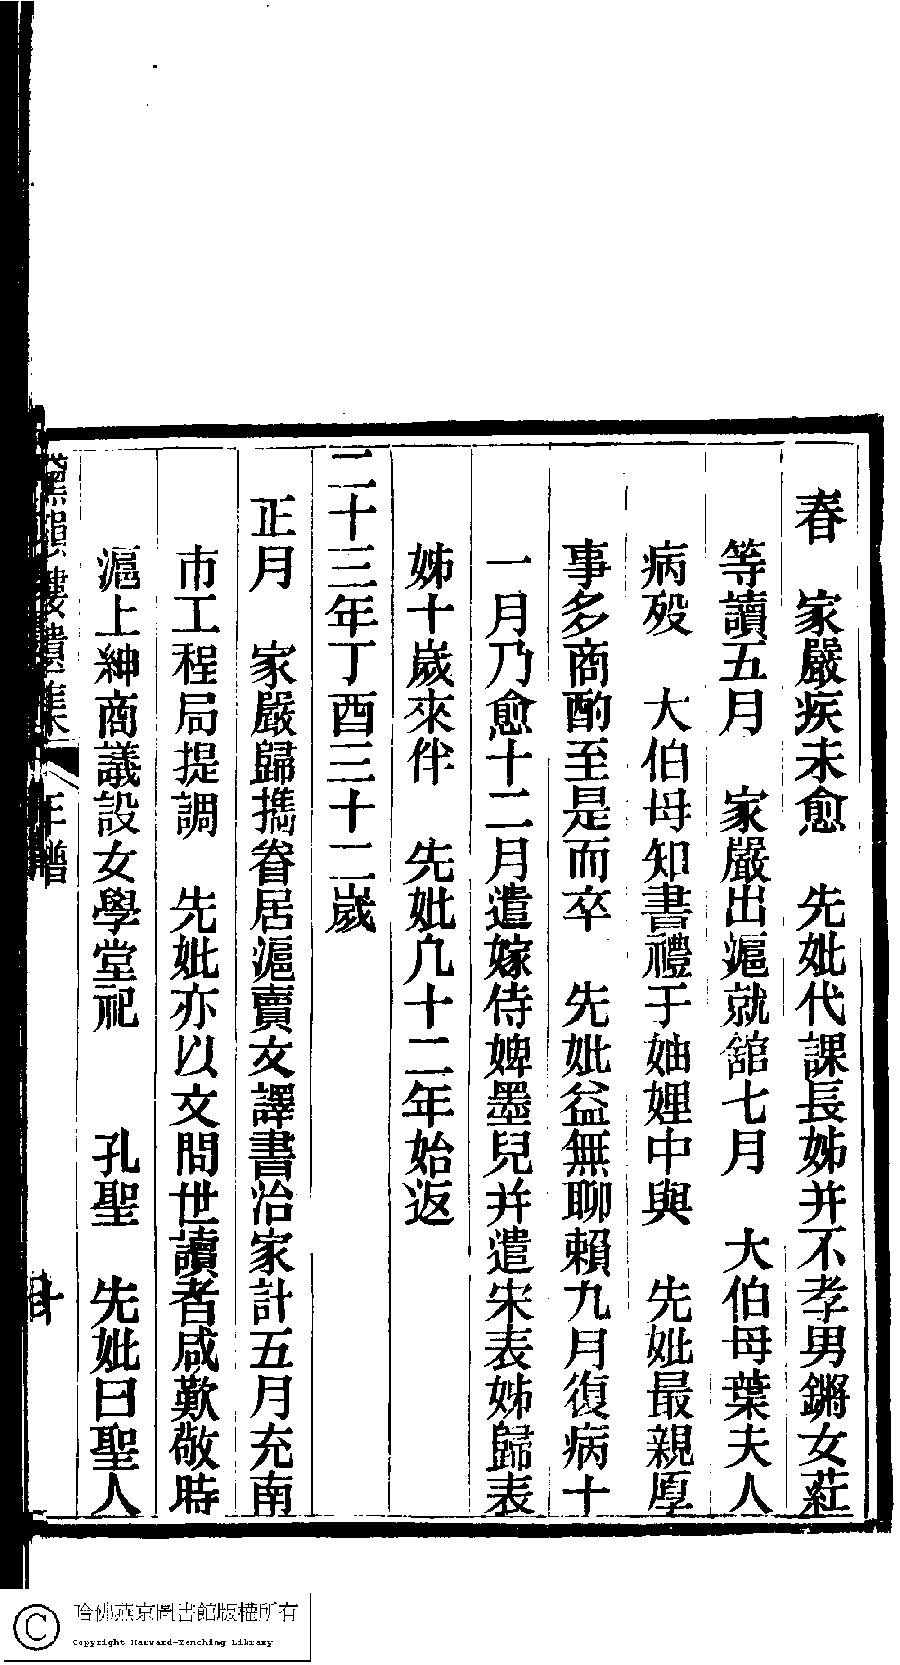 春　家嚴疾未愈　先妣代課長姊并不孝男鏘女葒
等讀五月　家嚴出滬就舘七月　大伯母葉夫人
病殁　大伯母知書禮于妯娌中與　先妣最親厚
事多商酌至是而卒　先妣益無聊賴九月復病十
一月乃愈十二月遣嫁侍婢墨兒并遣宋表姊歸表
姊十歲來伴　先妣凡十二年始返
二十三年丁酉三十二歲
正月　家嚴歸携眷居滬賣文譯書治家計五月充南
市工程局提調　先妣亦以文問世讀者咸歎敬時
滬上紳商議設女學堂祀　孔聖　先妣曰聖人
黛韻樓遺集　年譜
哈佛燕京圖書館版權所有
Copyright Harvard-Yenching Library